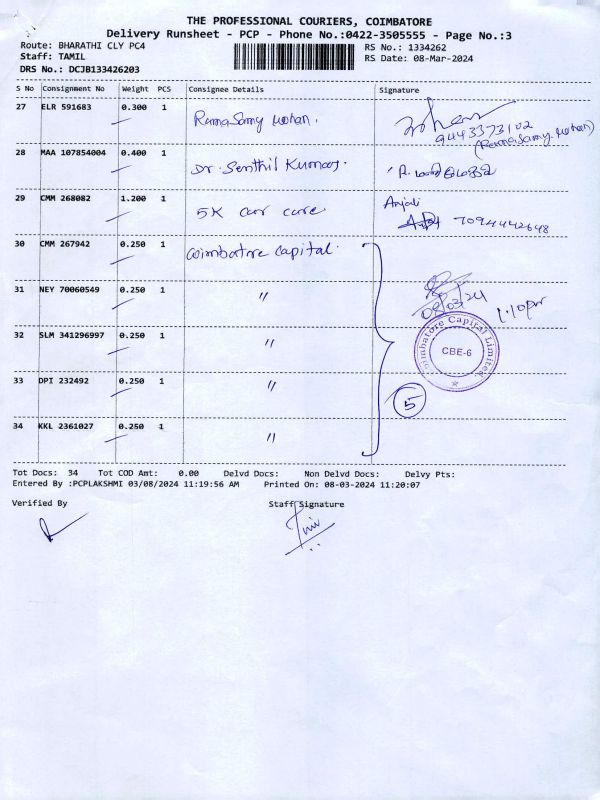 THE PROFESSIONAL COURIERS, COIMBATORE
Delivery Runsheet - PCP - Phone No.:0422-3505555 - Page No.:3
Route: BHARATHI CLY PC4
RS No.: 1334262
Staff: TAMIL
RS Date: 08-Mar-2024
DRS No.: DCJB133426203
S No Consignment No Weight PCS Consignee Details Signature
27 ELR 591683 0.300 1 Ramasamy Mohan.
9443373102
(Ramasamy. Mohan)
28 MAA 107854004 0.400 1 Dr. Senthil Kumar.
29 CMM 268082 1.200 1 5K car care Anjali
7094442648
30 CMM 267942 0.250 1 Coimbatore Capital.
31 NEY 70060549 0.250 1 "
08/03/24
1.10pm
32 SLM 341296997 0.250 1 "
Coimbatore Capital Limited
CBE-6
33 DPI 232492 0.250 1 "
5
34 KKL 2361027 0.250 1 "
Tot Docs: 34 Tot COD Amt: 0.00 Delvd Docs: Non Delvd Docs: Delvy Pts:
Entered By :PCPLAKSHMI 03/08/2024 11:19:56 AM Printed On: 08-03-2024 11:20:07
Verified By Staff Signature